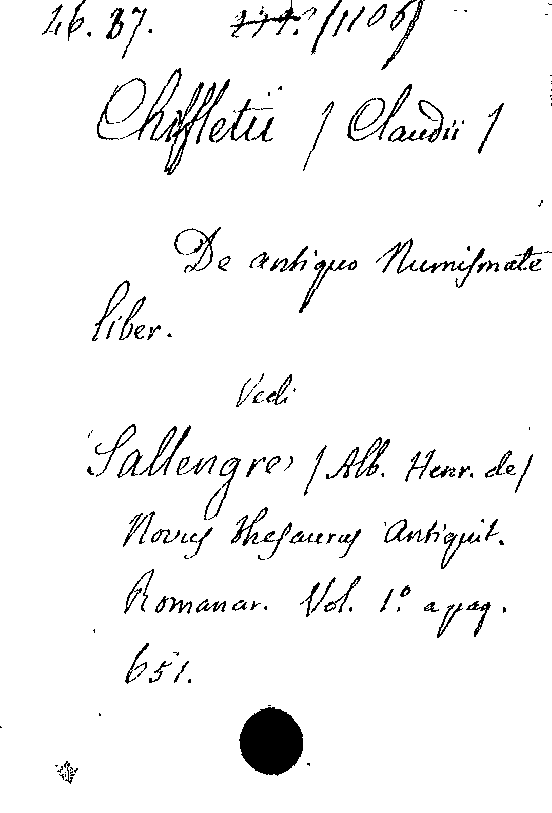 26. B7. /1106/
Chiffletii / Claudii /
De antiquo Numismate
liber.
Vedi
Sallengre / Alb. Henr. de /
Novus Thesaurus Antiquit.
Romanar. Vol. 1.º a pag.
651.